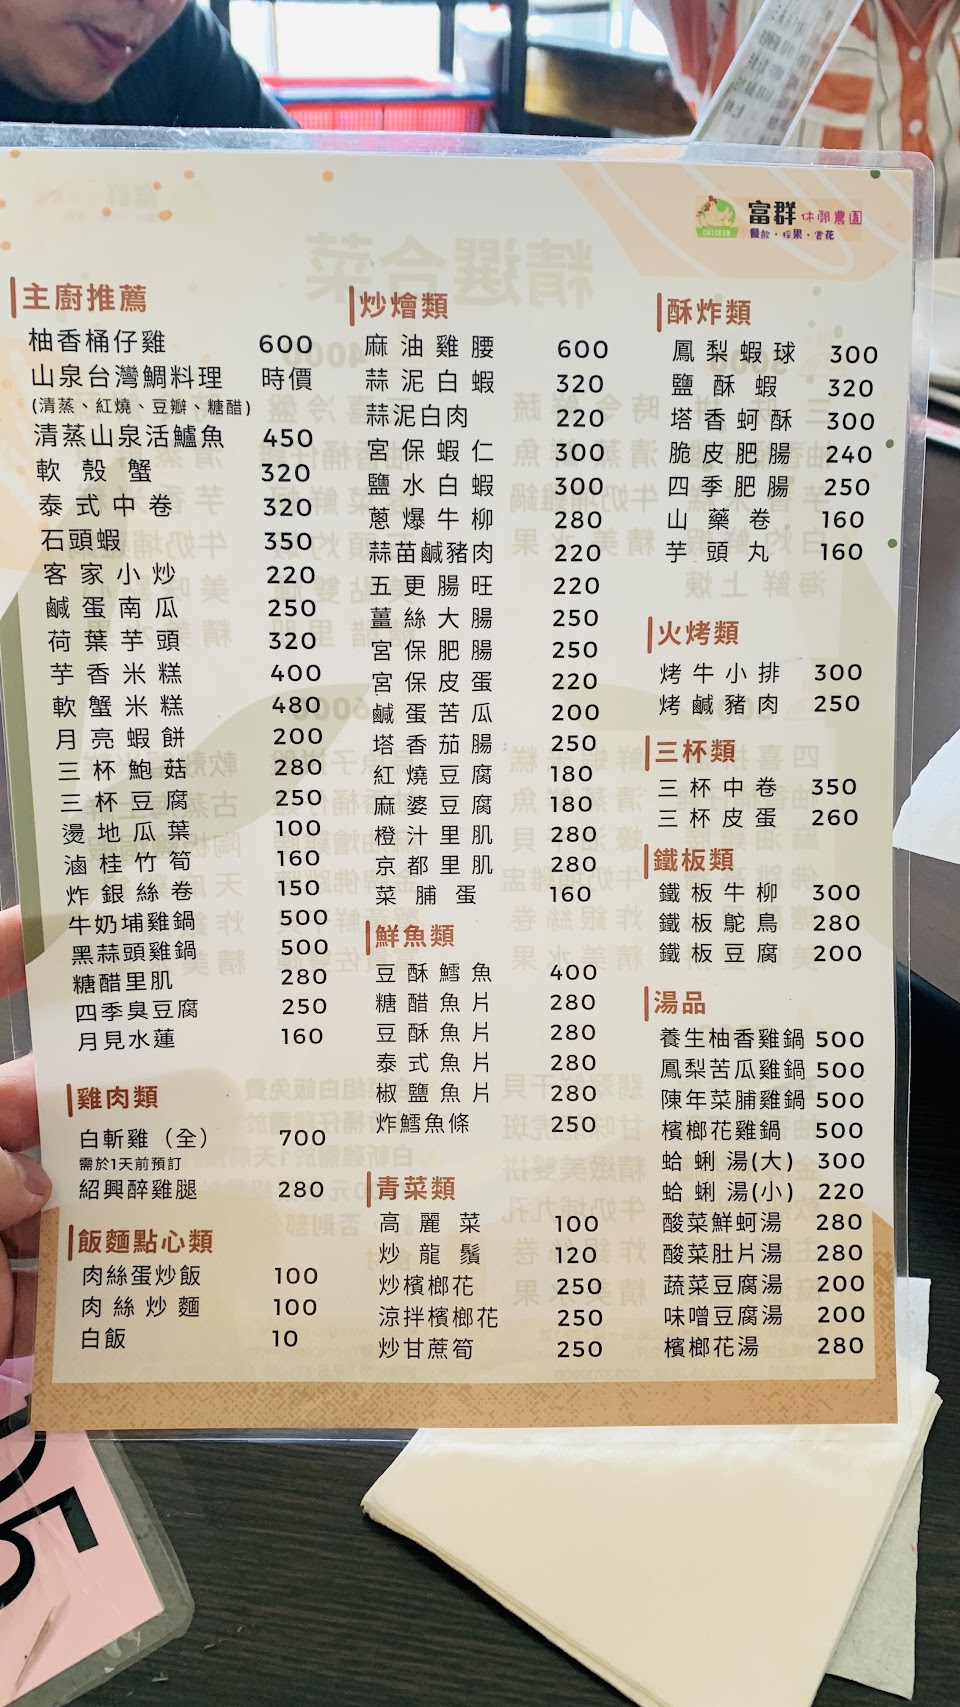 富群休閒農園
CHICKEN
餐飲・採果・賞花
主廚推薦
柚香桶仔雞 600
山泉台灣鯛料理 時價
(清蒸、紅燒、豆瓣、糖醋)
清蒸山泉活鱸魚 450
軟殼蟹 320
泰式中卷 320
石頭蝦 350
客家小炒 220
鹹蛋南瓜 250
荷葉芋頭 320
芋香米糕 400
軟蟹米糕 480
月亮蝦餅 200
三杯鮑菇 280
三杯豆腐 250
燙地瓜葉 100
滷桂竹筍 160
炸銀絲卷 150
牛奶埔雞鍋 500
黑蒜頭雞鍋 500
糖醋里肌 280
四季臭豆腐 250
月見水蓮 160
雞肉類
白斬雞（全） 700
需於1天前預訂
紹興醉雞腿 280
飯麵點心類
肉絲蛋炒飯 100
肉絲炒麵 100
白飯 10
炒燴類
麻油雞腰 600
蒜泥白蝦 320
蒜泥白肉 220
宮保蝦仁 300
鹽水白蝦 300
蔥爆牛柳 280
蒜苗鹹豬肉 220
五更腸旺 220
薑絲大腸 250
宮保肥腸 250
宮保皮蛋 220
鹹蛋苦瓜 200
塔香茄腸 250
紅燒豆腐 180
麻婆豆腐 180
橙汁里肌 280
京都里肌 280
菜脯蛋 160
鮮魚類
豆酥鱈魚 400
糖醋魚片 280
豆酥魚片 280
泰式魚片 280
椒鹽魚片 280
炸鱈魚條 250
青菜類
高麗菜 100
炒龍鬚 120
炒檳榔花 250
涼拌檳榔花 250
炒甘蔗筍 250
酥炸類
鳳梨蝦球 300
鹽酥蝦 320
塔香蚵酥 300
脆皮肥腸 240
四季肥腸 250
山藥卷 160
芋頭丸 160
火烤類
烤牛小排 300
烤鹹豬肉 250
三杯類
三杯中卷 350
三杯皮蛋 260
鐵板類
鐵板牛柳 300
鐵板鴕鳥 280
鐵板豆腐 200
湯品
養生柚香雞鍋 500
鳳梨苦瓜雞鍋 500
陳年菜脯雞鍋 500
檳榔花雞鍋 500
蛤蜊湯(大) 300
蛤蜊湯(小) 220
酸菜鮮蚵湯 280
酸菜肚片湯 280
蔬菜豆腐湯 200
味噌豆腐湯 200
檳榔花湯 280